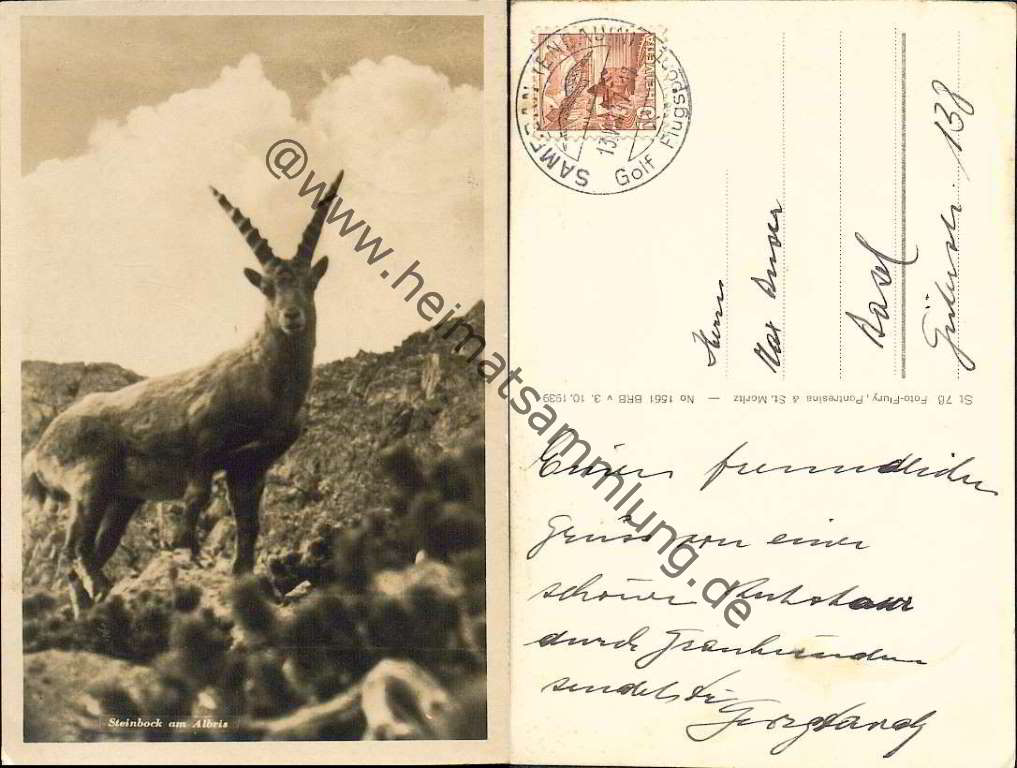 Steinbock am Albris
@www.heimatsammlung.de
SAMEDAN
Golf Flugsport
HELVETIA
10
13.
Herrn
Max
Basel
Güterstr. 138
St 78 Foto-Flury, Pontresina & St. Moritz — No 1561 BRB v 3. 10. 1939
Einen freundlichen
Gruss von einer
schönen
durch Graubünden
sendet Dir
Georg